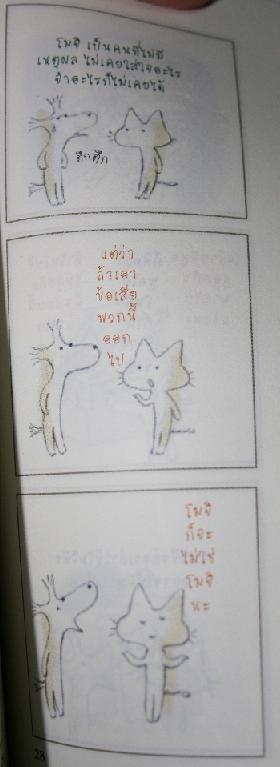 โมจิ เป็นคนที่ไม่มี
เหตุผล ไม่เคยใส่ใจอะไร
จำอะไรก็ไม่เคยได้
ฮึกฮึก
แต่ว่า
ถ้าเอา
ข้อเสีย
พวกนี้
ออก
ไป
โมจิ
ก็จะ
ไม่ใช่
โมจิ
นะ
28